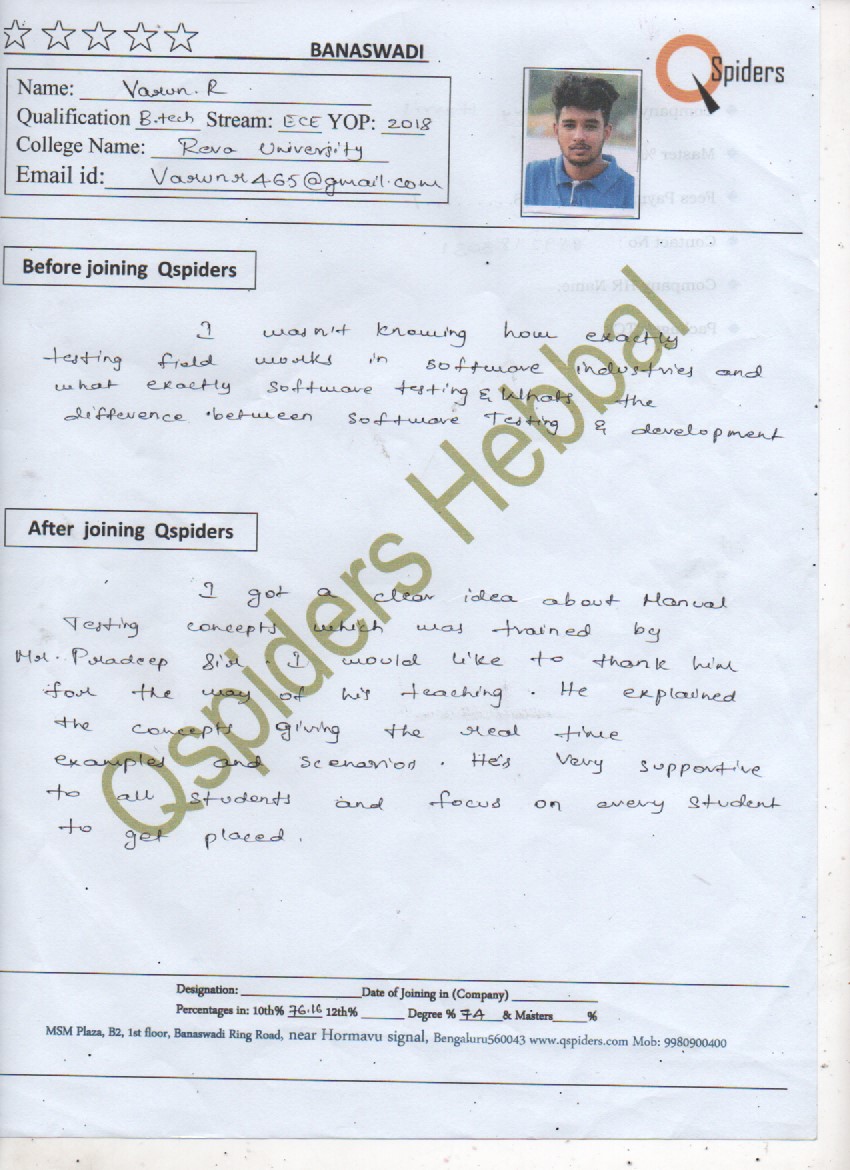 BANASWADI
QSpiders
Name: Varun.R
Qualification B.tech Stream: ECE YOP: 2018
College Name: Reva University
Email id: Varunr465@gmail.com
Before joining Qspiders
I wasn't knowing how exactly
testing field works in software industries and
what exactly software testing & Whats the
difference between software Testing & development
After joining Qspiders
I got a clear idea about Manual
Testing concepts which was trained by
Mr. Pradeep Sir. I would like to thank him
for the way of his teaching. He explained
the concepts giving the real time
examples and scenarios. He's Very supportive
to all students and focus on every student
to get placed.
Qspiders Hebbal
Designation: Date of Joining in (Company)
Percentages in: 10th% 76.16 12th% Degree % 74 & Masters %
MSM Plaza, B2, 1st floor, Banaswadi Ring Road, near Hormavu signal, Bengaluru560043 www.qspiders.com Mob: 9980900400